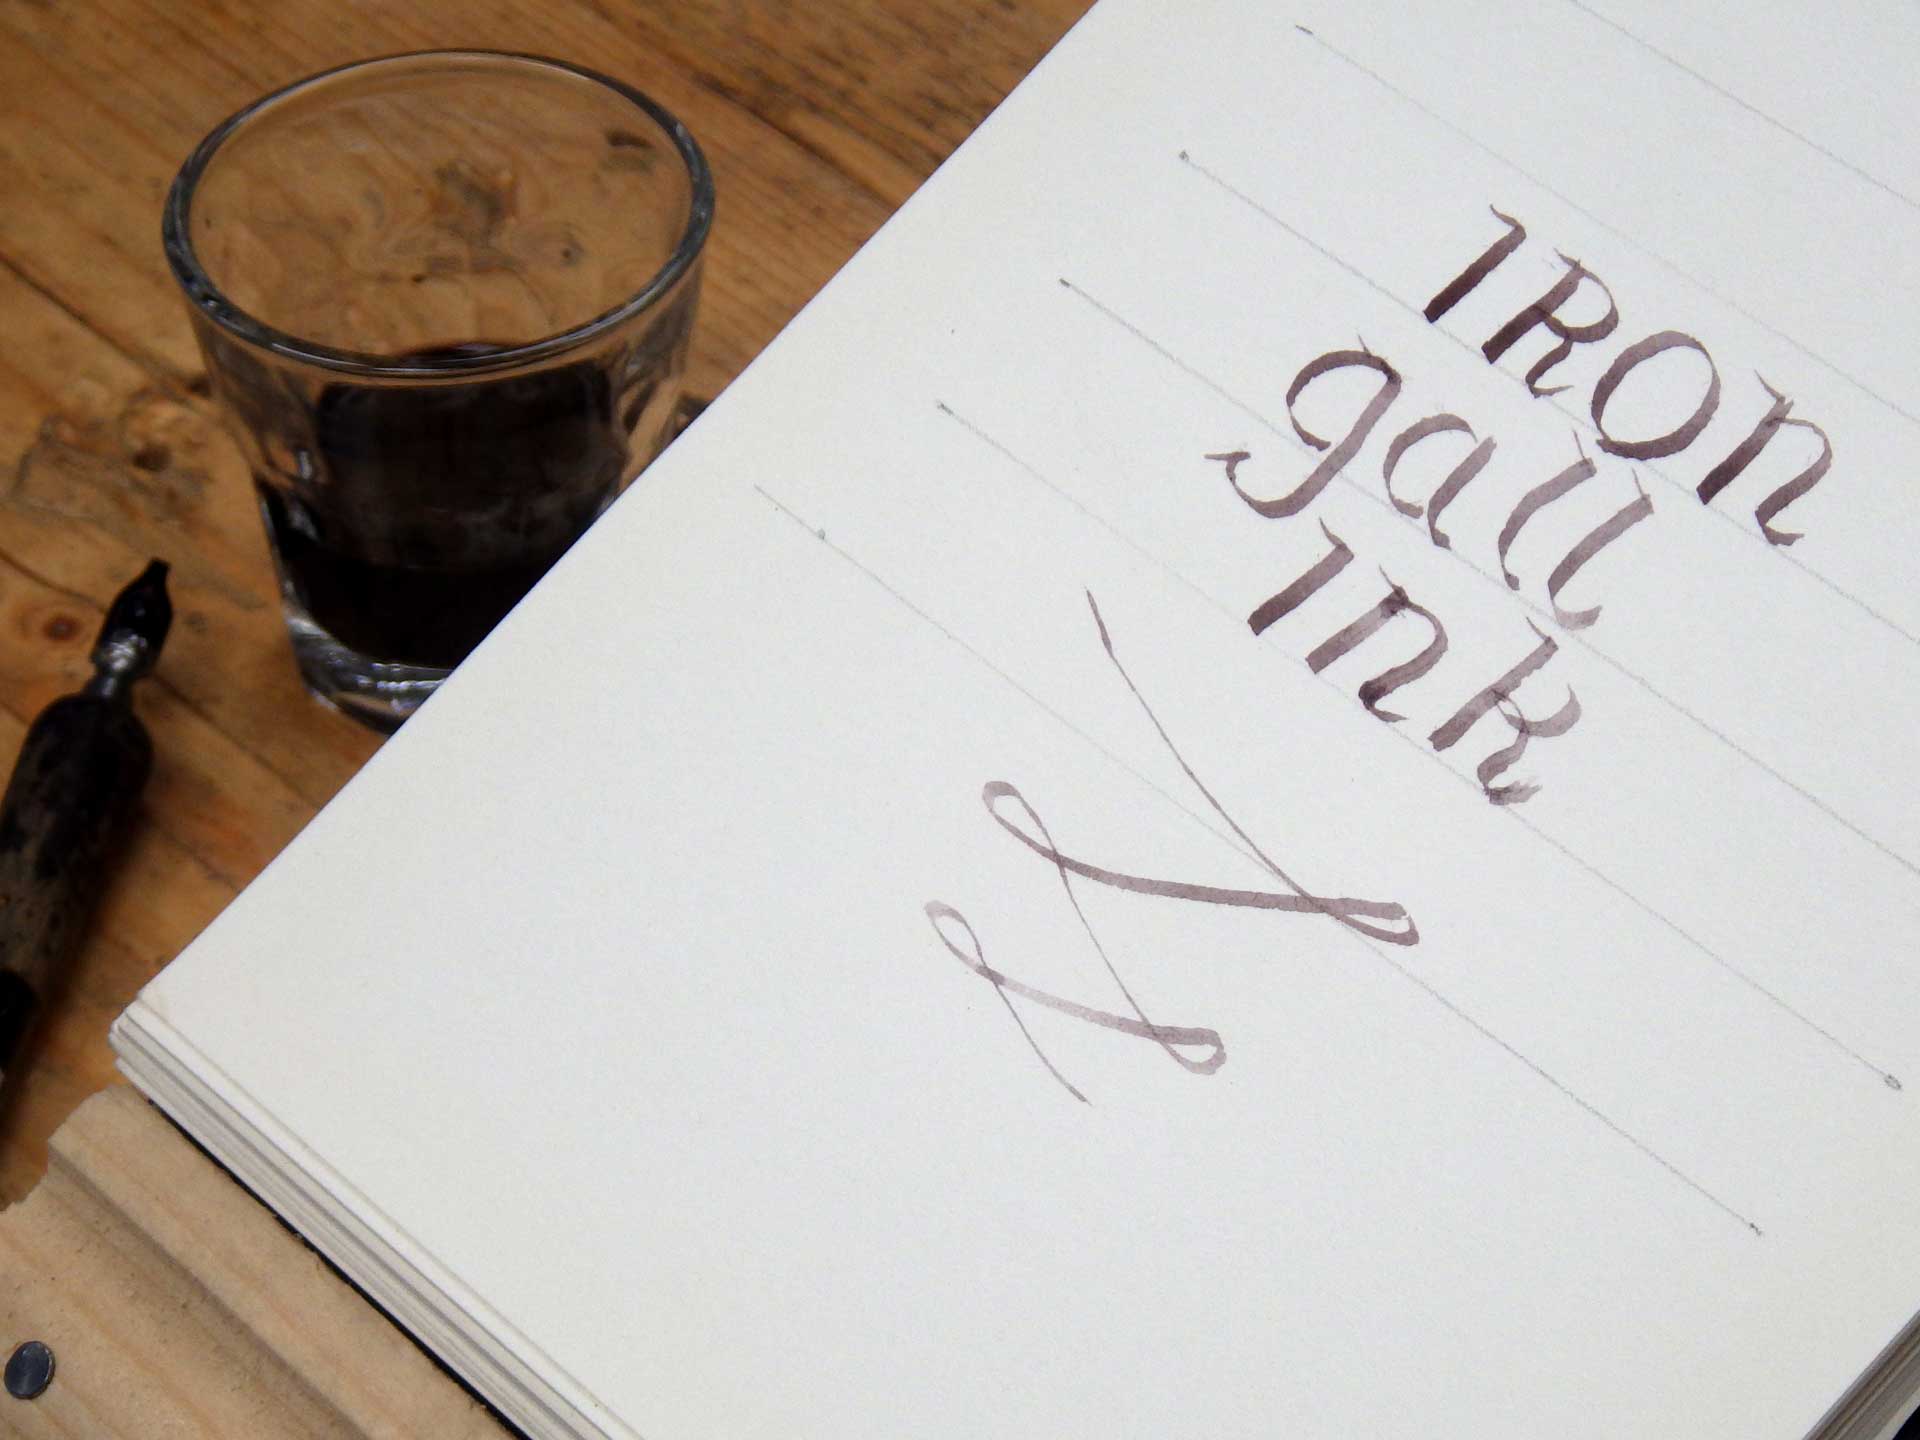 IRON
gall
Ink